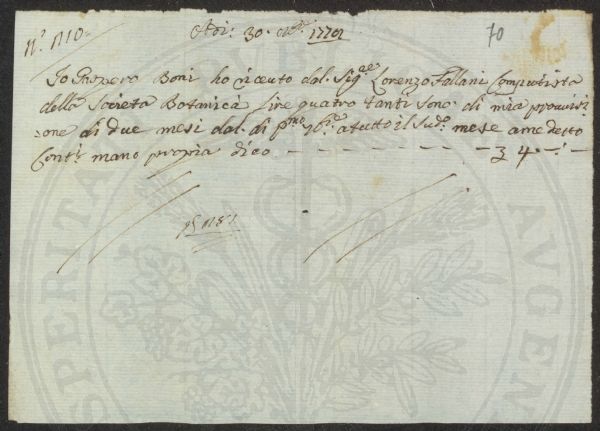 70
Adì: 30. 8bre 1770
Io Prospero Boni ho riceuto dal. Sigre Lorenzo Fallani Computista
della Società Botanica lire quatro tanti sono di mia prouuisi
one di due mesi dal. di pmo 7bre a tutto il Sudo. mese a me detto
Conti mano propria dico - - - - - - - - - 3 4 . - . -
PROSPERITATI AUGENDAE